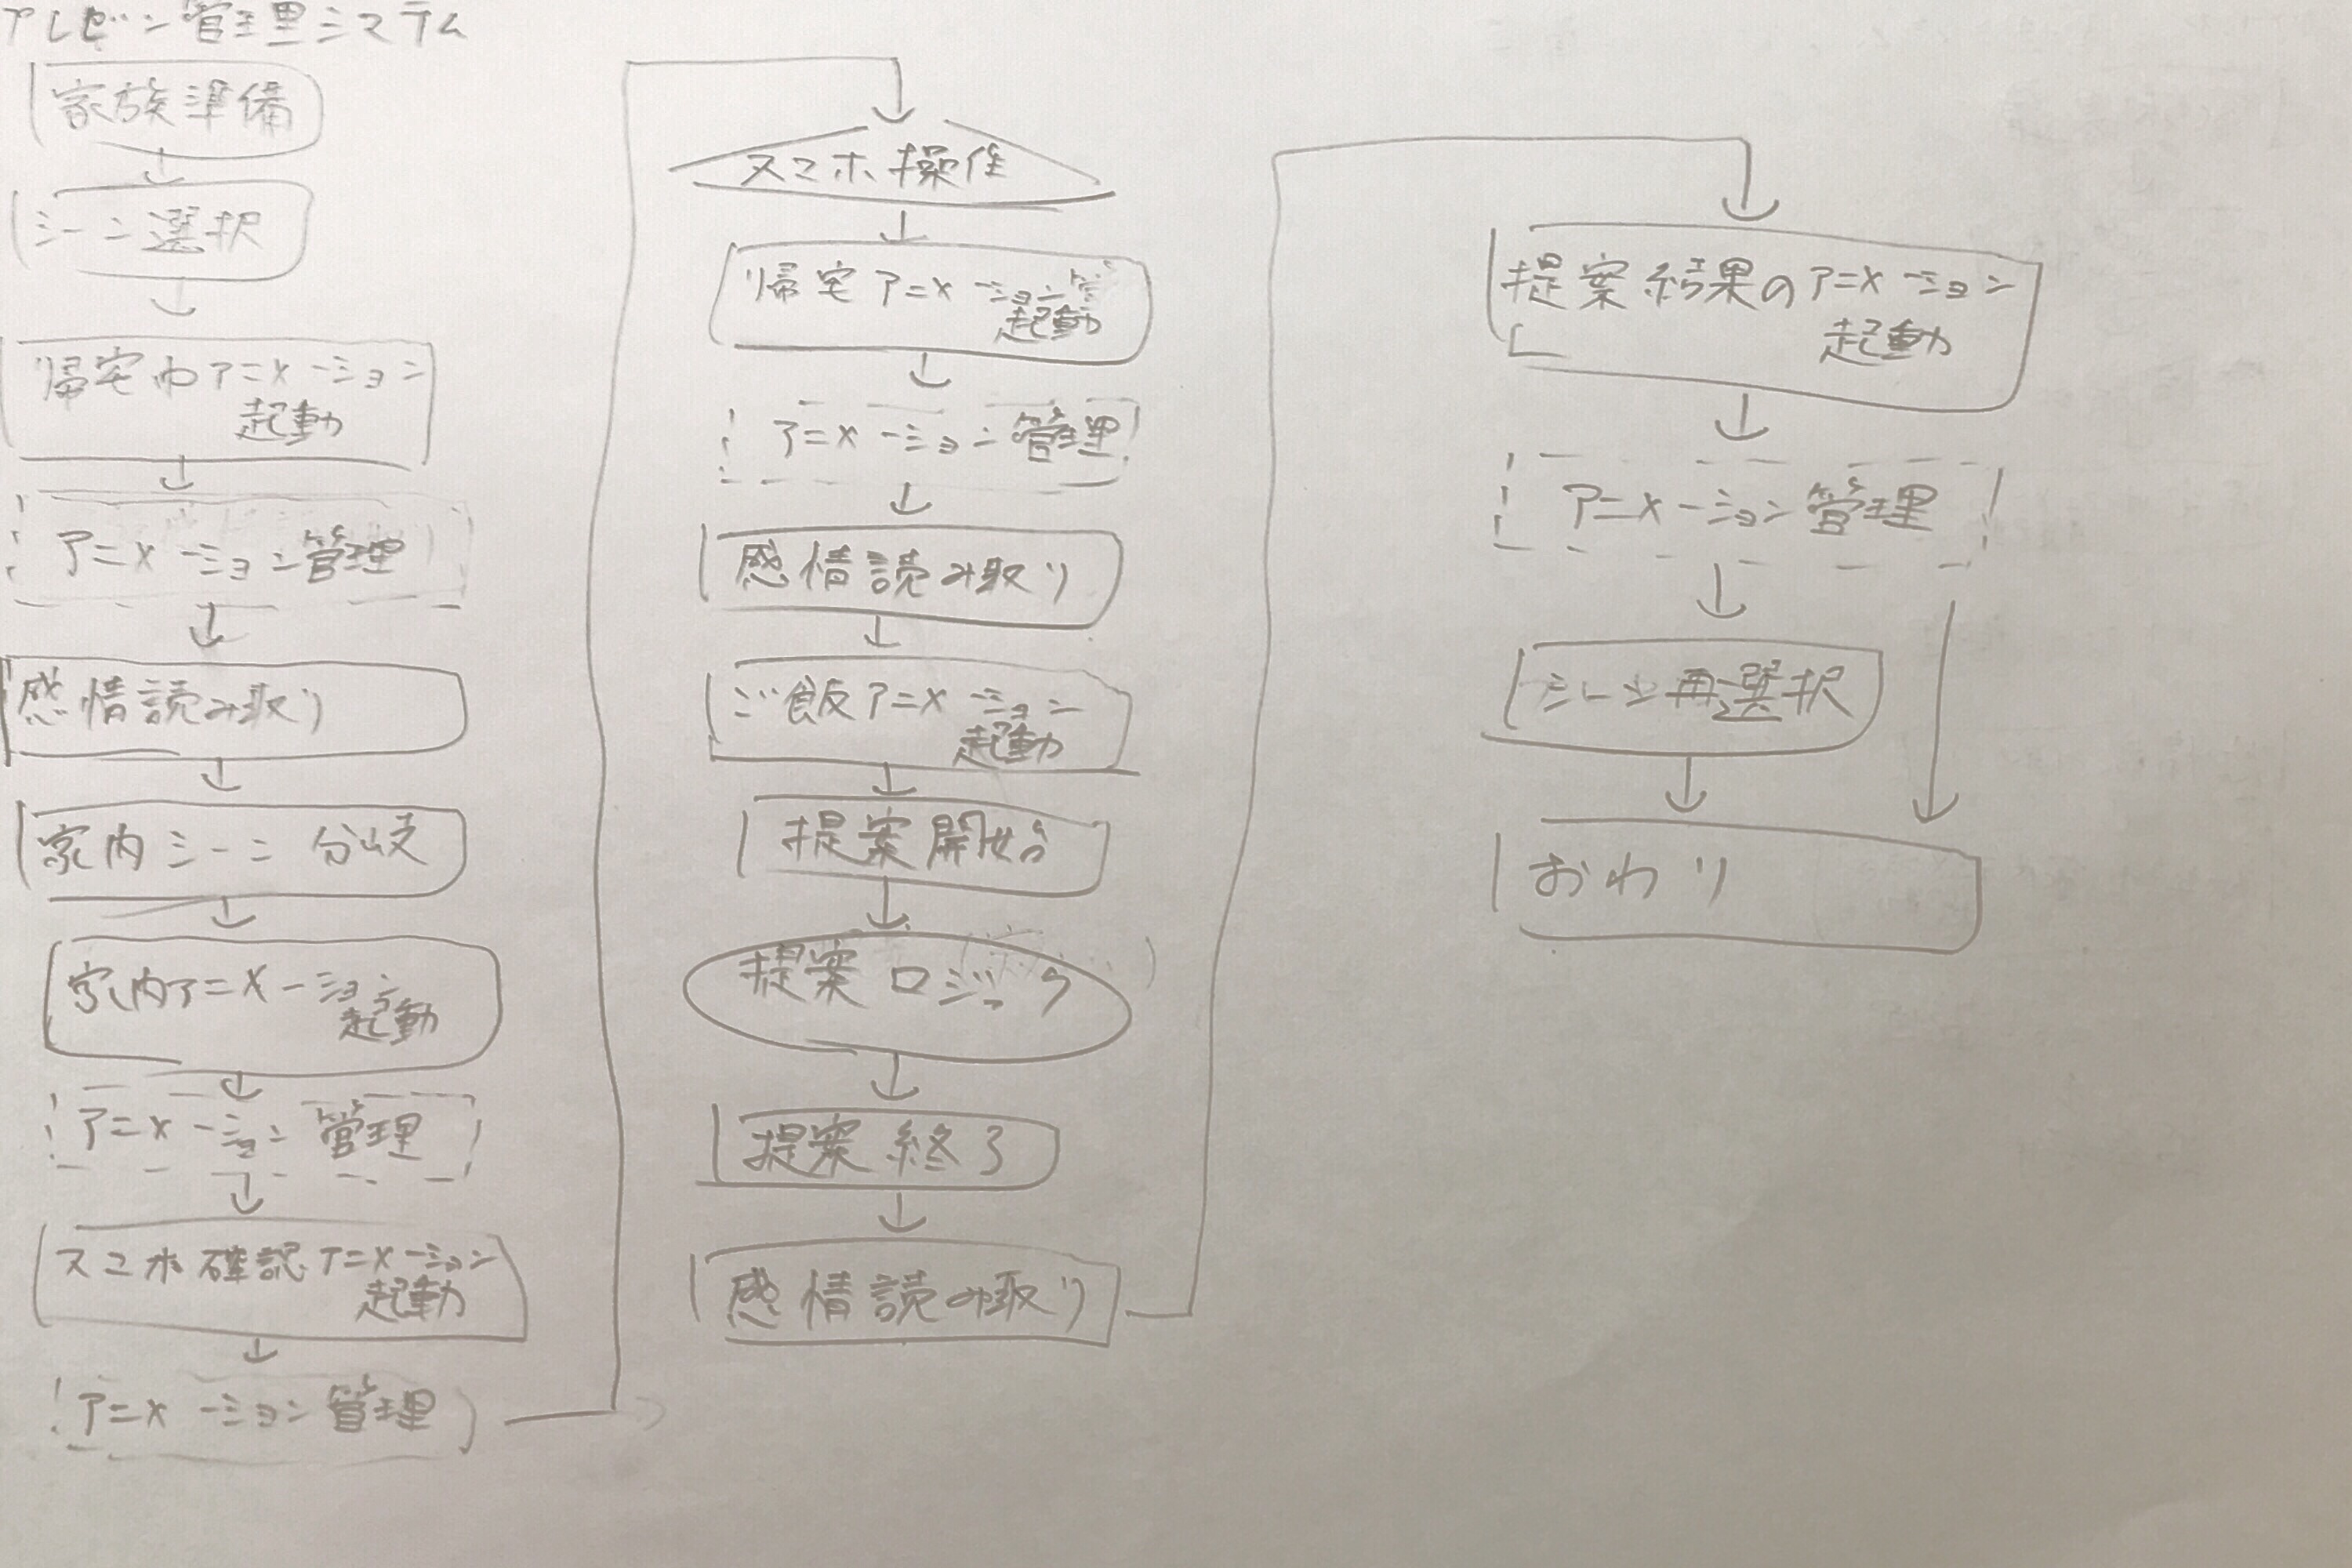 アレビン管理システム
家族準備
シーン選択
帰宅中アニメーション
起動
アニメーション管理
感情読み取り
家内シーン分岐
家内アニメーション
起動
アニメーション管理
スマホ確認アニメーション
起動
アニメーション管理
スマホ操作
帰宅アニメーション
起動
アニメーション管理
感情読み取り
ご飯アニメーション
起動
提案開始
提案ロジック
提案終了
感情読み取り
提案結果のアニメーション
起動
アニメーション管理
シーン再選択
おわり